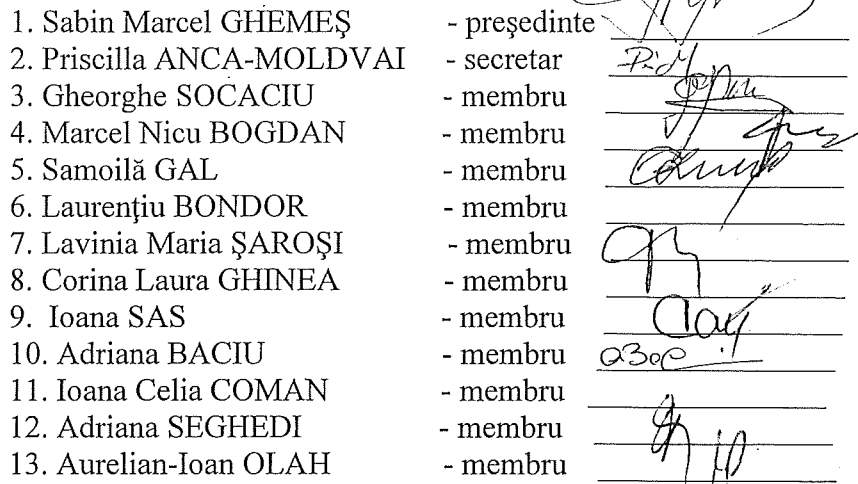 1. Sabin Marcel GHEMEŞ - preşedinte
2. Priscilla ANCA-MOLDVAI - secretar
3. Gheorghe SOCACIU - membru
4. Marcel Nicu BOGDAN - membru
5. Samoilă GAL - membru
6. Laurenţiu BONDOR - membru
7. Lavinia Maria ŞAROŞI - membru
8. Corina Laura GHINEA - membru
9. Ioana SAS - membru
10. Adriana BACIU - membru
11. Ioana Celia COMAN - membru
12. Adriana SEGHEDI - membru
13. Aurelian-Ioan OLAH - membru